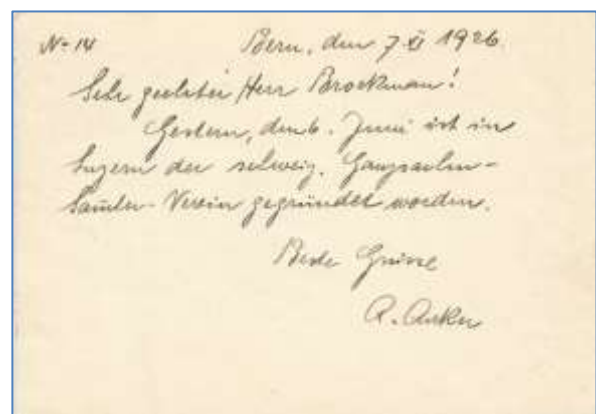 No 14 Bern, den 7 VI 1926.
Sehr geehrter Herr Brockman!
Gestern, den 6. Juni ist in
Luzern der schweiz. Ganzsachen-
Sam̄ler-Verein gegründet worden.
Beste Grüsse
A. Anker